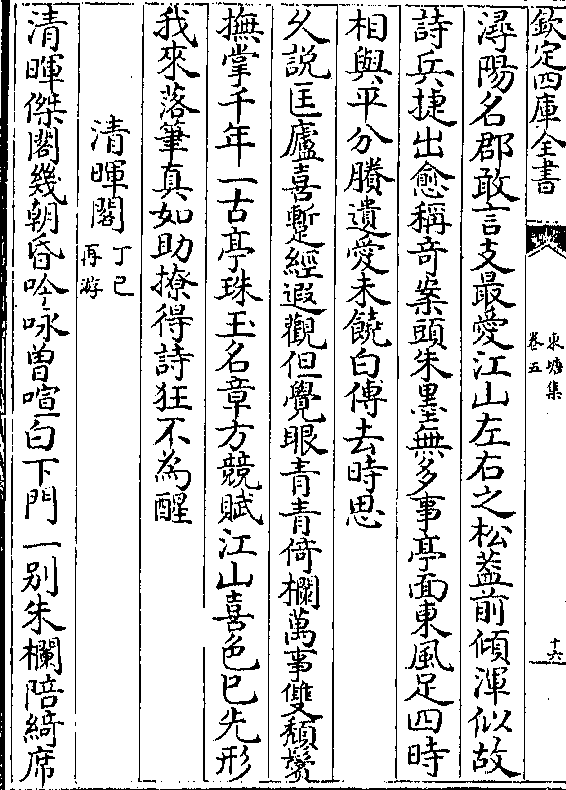 欽定四庫全書
東塘集
卷五
十六
潯陽名郡敢言支最愛江山左右之松葢前傾渾似故
詩兵捷出愈稱竒案頭朱墨無多事亭面東風足四時
相與平分賸遺愛未饒白傅去時思
乆説匡廬喜蹔經遐觀但覺眼青青倚欄萬事雙頽鬢
撫掌千年一古亭珠玉名章方競賦江山喜色已先形
我來落筆真如助撩得詩狂不為醒
清暉閣丁巳再游
清暉傑閣幾朝昏吟咏曾喧白下門一别朱欄陪綺席